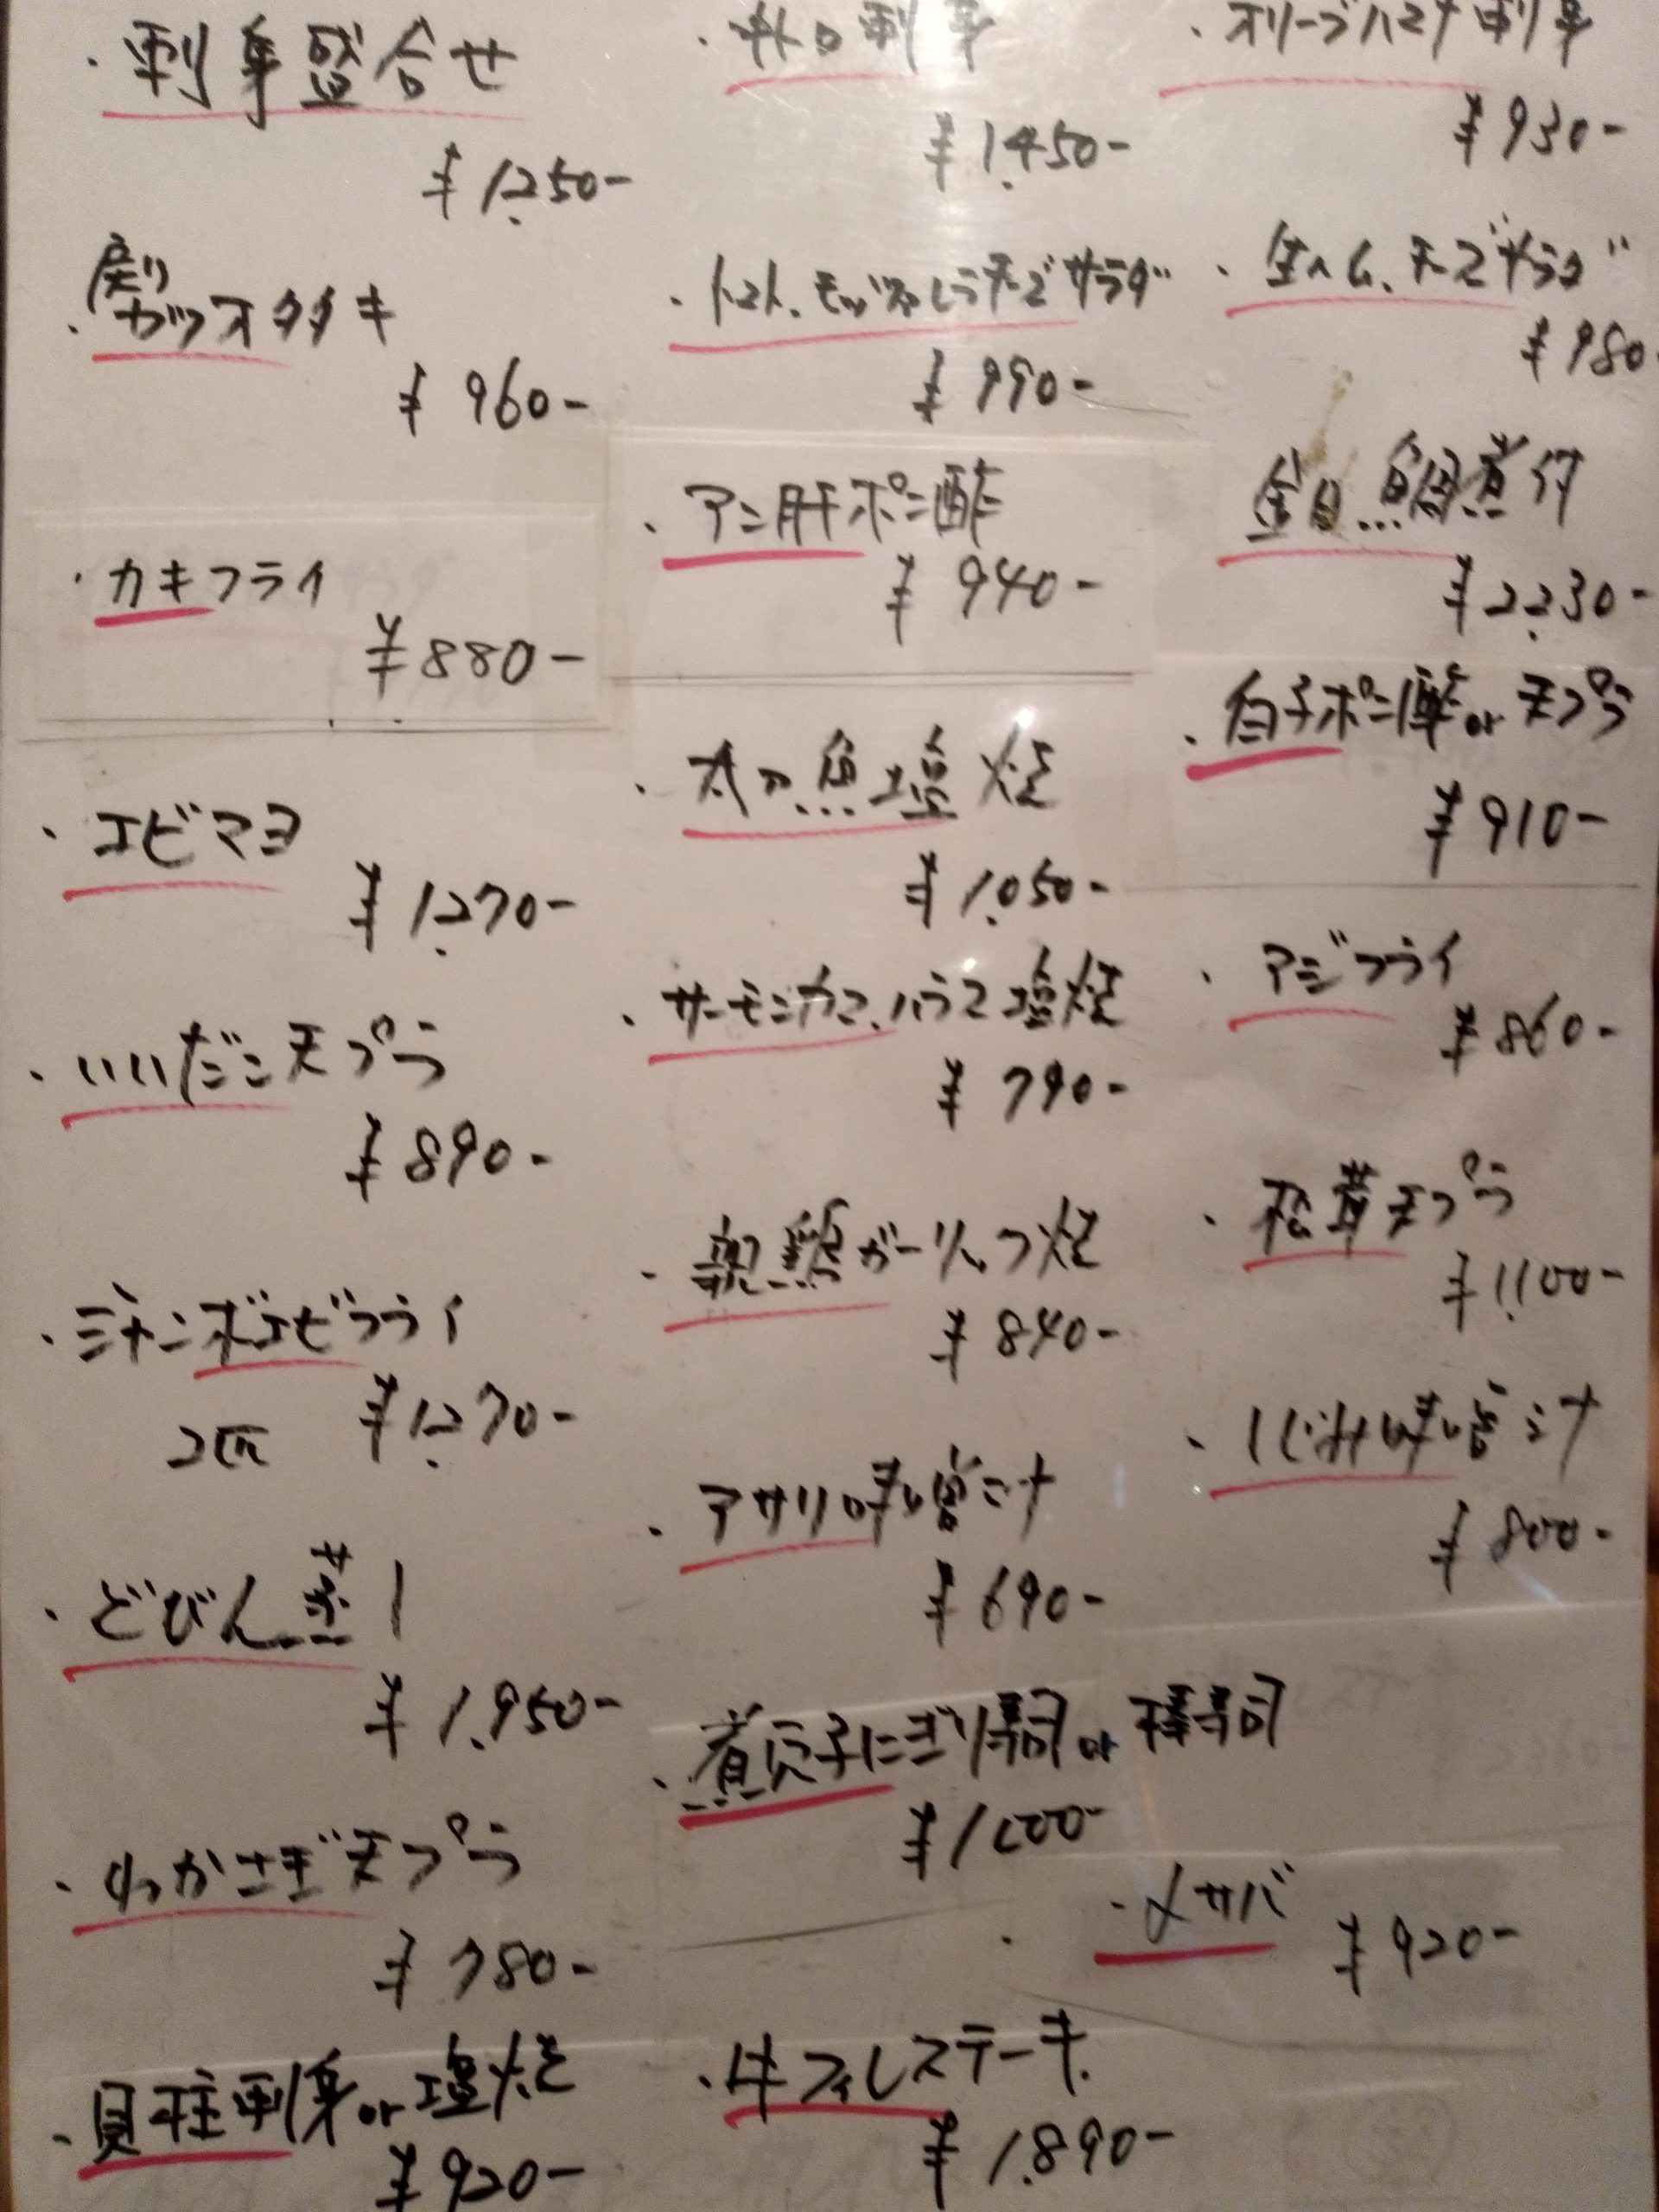 ・刺身盛合せ
¥1,250-
・戻りガツオタタキ
¥960-
・カキフライ
¥880-
・エビマヨ
¥1,270-
・いいだこ天プラ
¥890-
・ジャンボエビフライ
2匹 ¥1,270-
・どびん蒸し
¥1,950-
・わかさぎ天プラ
¥780-
・貝柱刺身or塩焼
¥920-
・中トロ刺身
¥1,450-
・トマト、モッツァレラチーズサラダ
¥990-
・アン肝ポン酢
¥940-
・太刀魚塩焼
¥1,050-
・サーモンカマ、ハラス塩焼
¥790-
・親鶏ガーリック焼
¥840-
・アサリ味噌汁
¥690-
・煮穴子にぎり寿司or棒寿司
・牛フィレステーキ
¥1,890-
・オリーブハマチ刺身
¥930-
・生ハム、チーズサラダ
¥980
金目鯛煮付
¥2,230-
・白子ポン酢or天プラ
¥910-
・アジフライ
¥860-
・松茸天プラ
¥1,100-
・しじみ味噌汁
¥800-
・〆サバ
¥920-